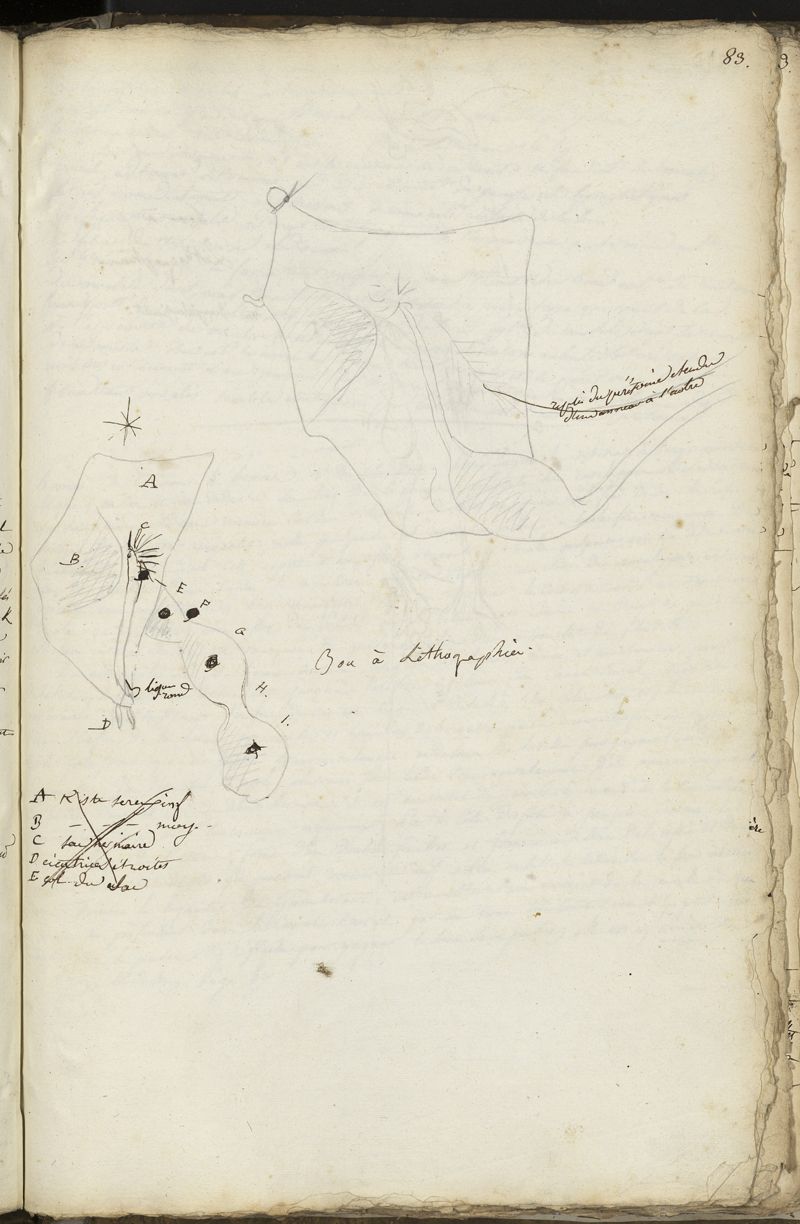 83.
repli du péritoine étendu
d'un anneau à l'autre
A
C
B.
E
F
G
H.
I.
ligam
rond
D
Bon à Lithographier.
A Kiste sereux inf
B - - - moy.
C sac herniaire
D cicatrices étroites
E col du sac